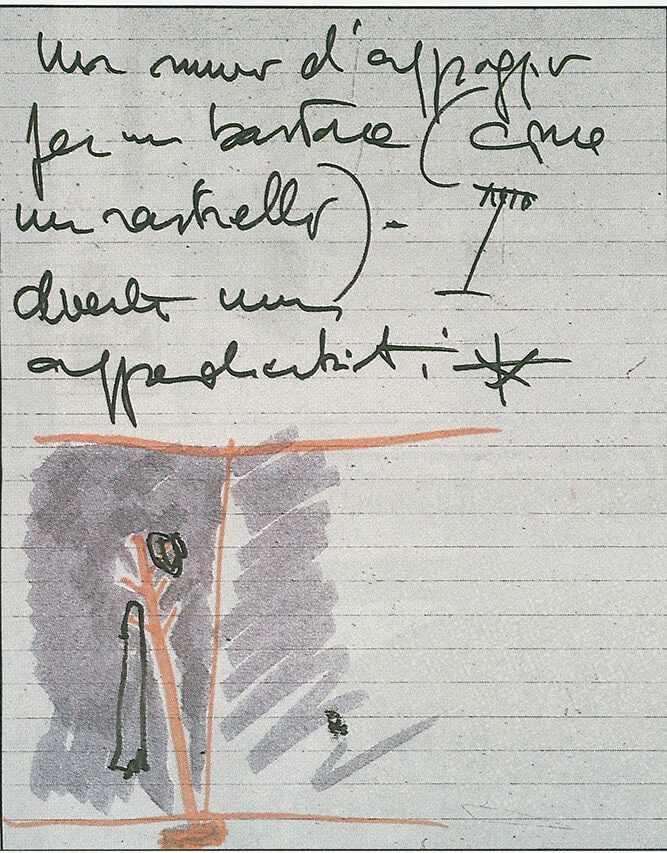 muro d'appoggio
per un bastone (come
un rastrello) -
diventa un
appendiabiti